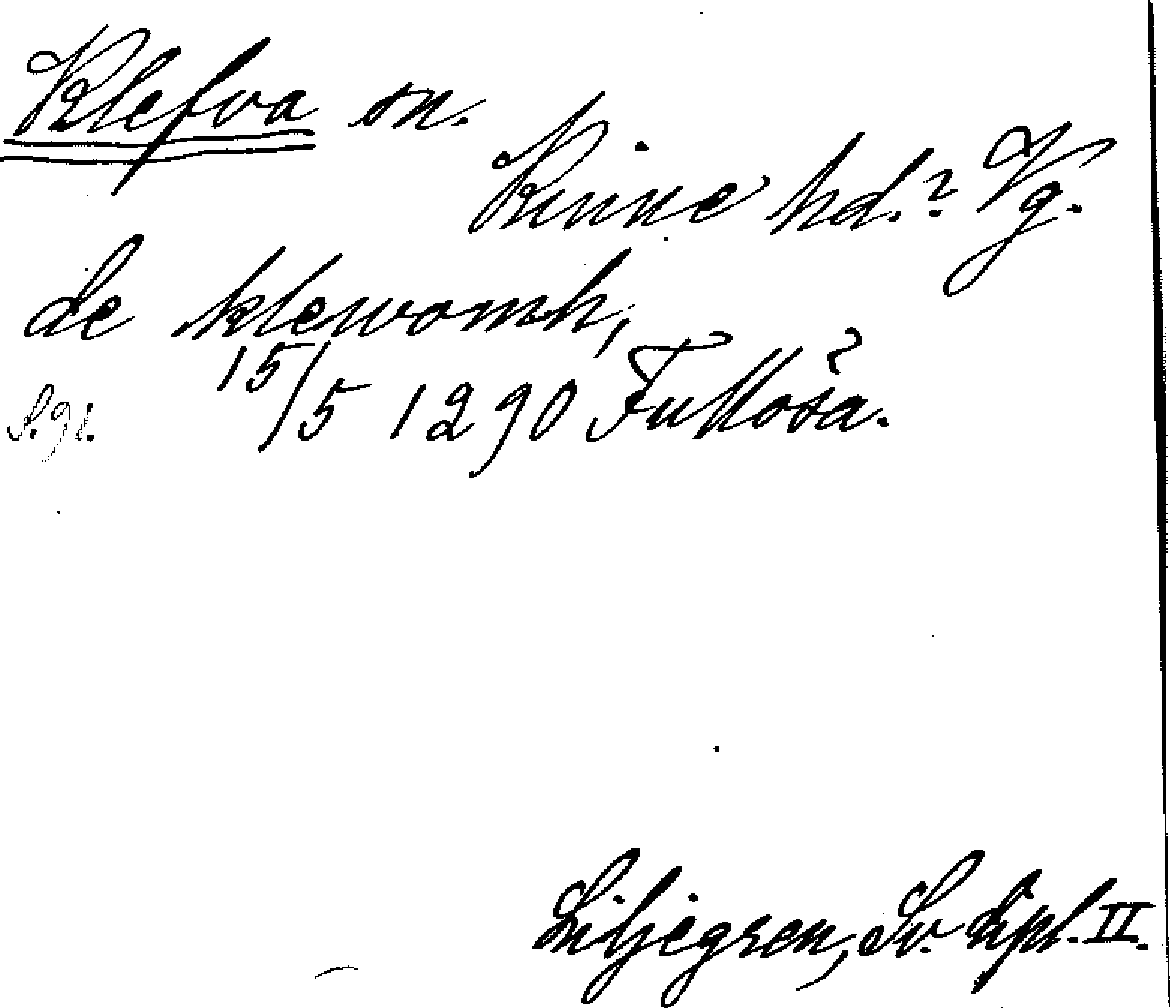 Klefva sn.
Kinne hd.? Vg.
de klewomh,
15/5 1290 Fullösa.
S. 91.
Liljegren, Sv. Dipl. II.